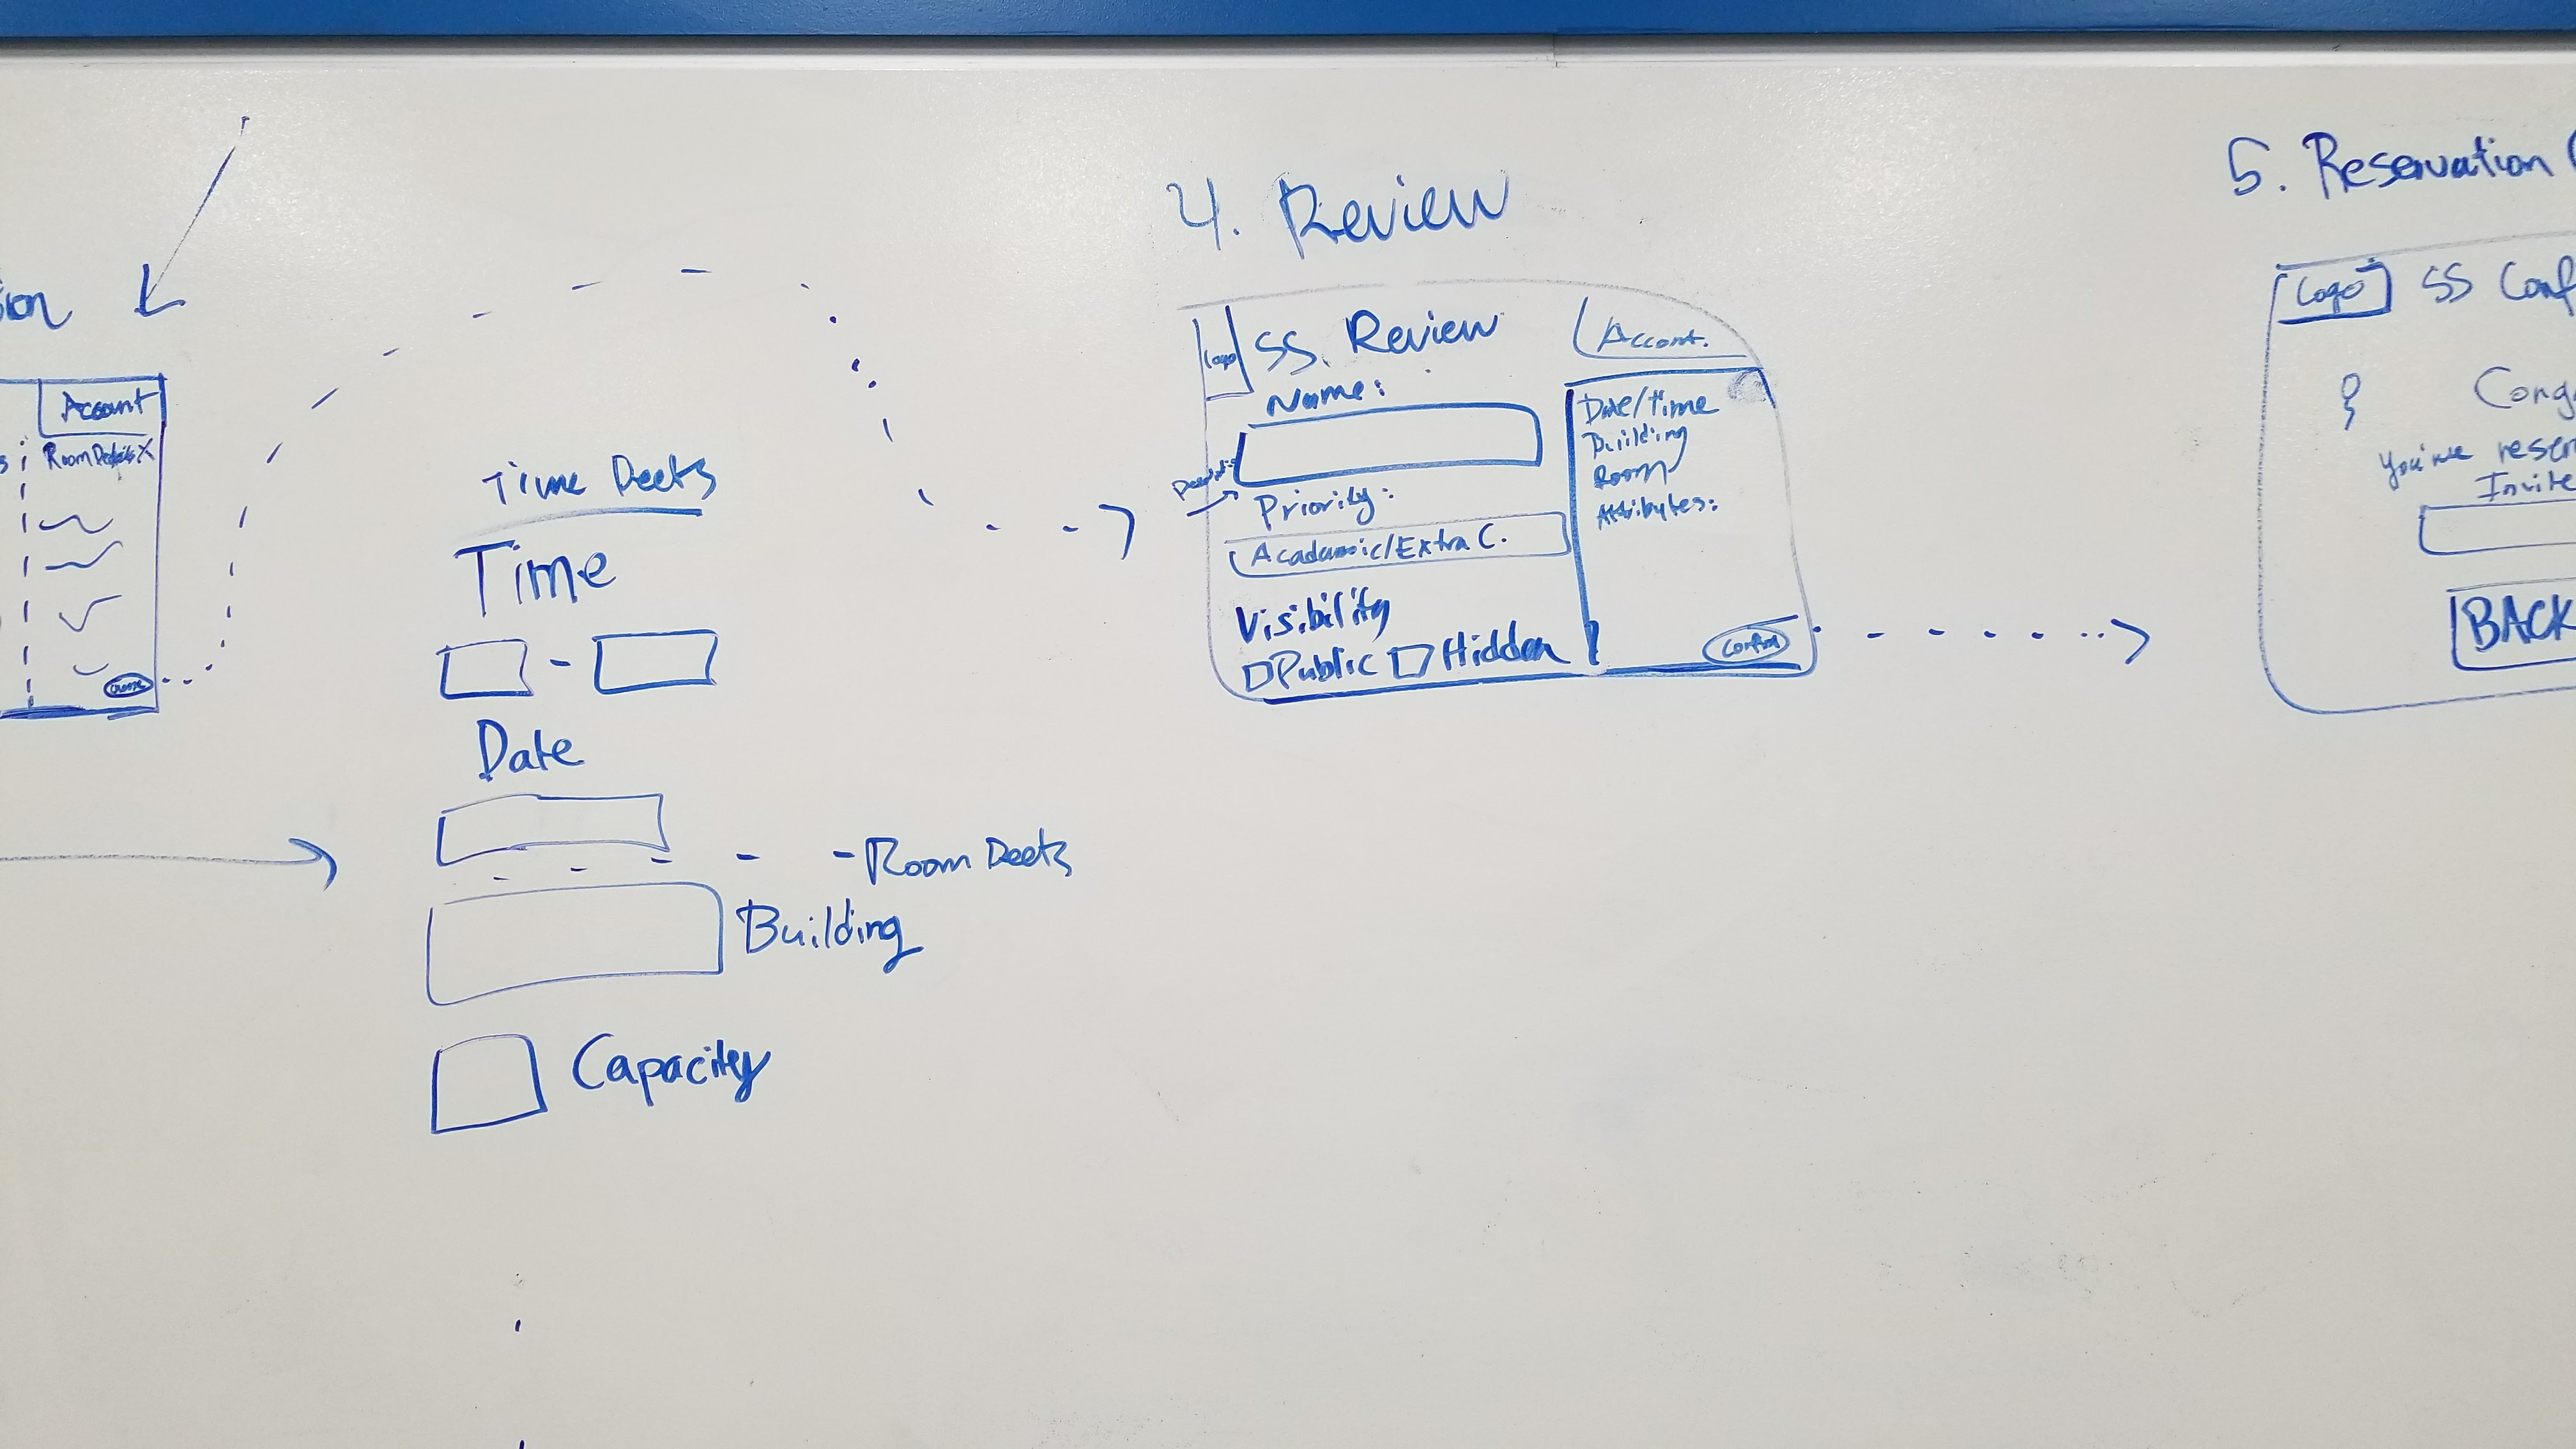 ion
Account
Room Details X
Time Deets
Time
-
Date
- Room Deets
Building
Capacity
4. Review
Logo
SS Review
Account.
Name:
Priority:
Academic/Extra C.
Visibility
Public
Hidden
Date/Time
Building
Room
Attributes:
Confirm
5. Reservation
Logo
SS Conf
Cong
You've reser
Invite
BACK